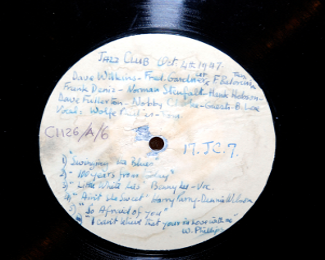 JAZZ CLUB Oct 4th 1947
Dave Wilkins - Fred Gardner
Frank Denis - Norman Stenfalt - Hank Hobson
Dave Fullerton - Nobby Clarke - Guests B. Lee
Vocal, Wolfe Phillips
CH26/A/6
17.JC.7.
1) "Swinging the Blues"
2) "100 years from today"
3) "Little White Lies" Benny Lee - Voc
4) "Ain't She Sweet" Harry Parry - Dennis Wilson
5) "So Afraid of you"
6) "I can't believe that you're in love with me"
W. Phillips